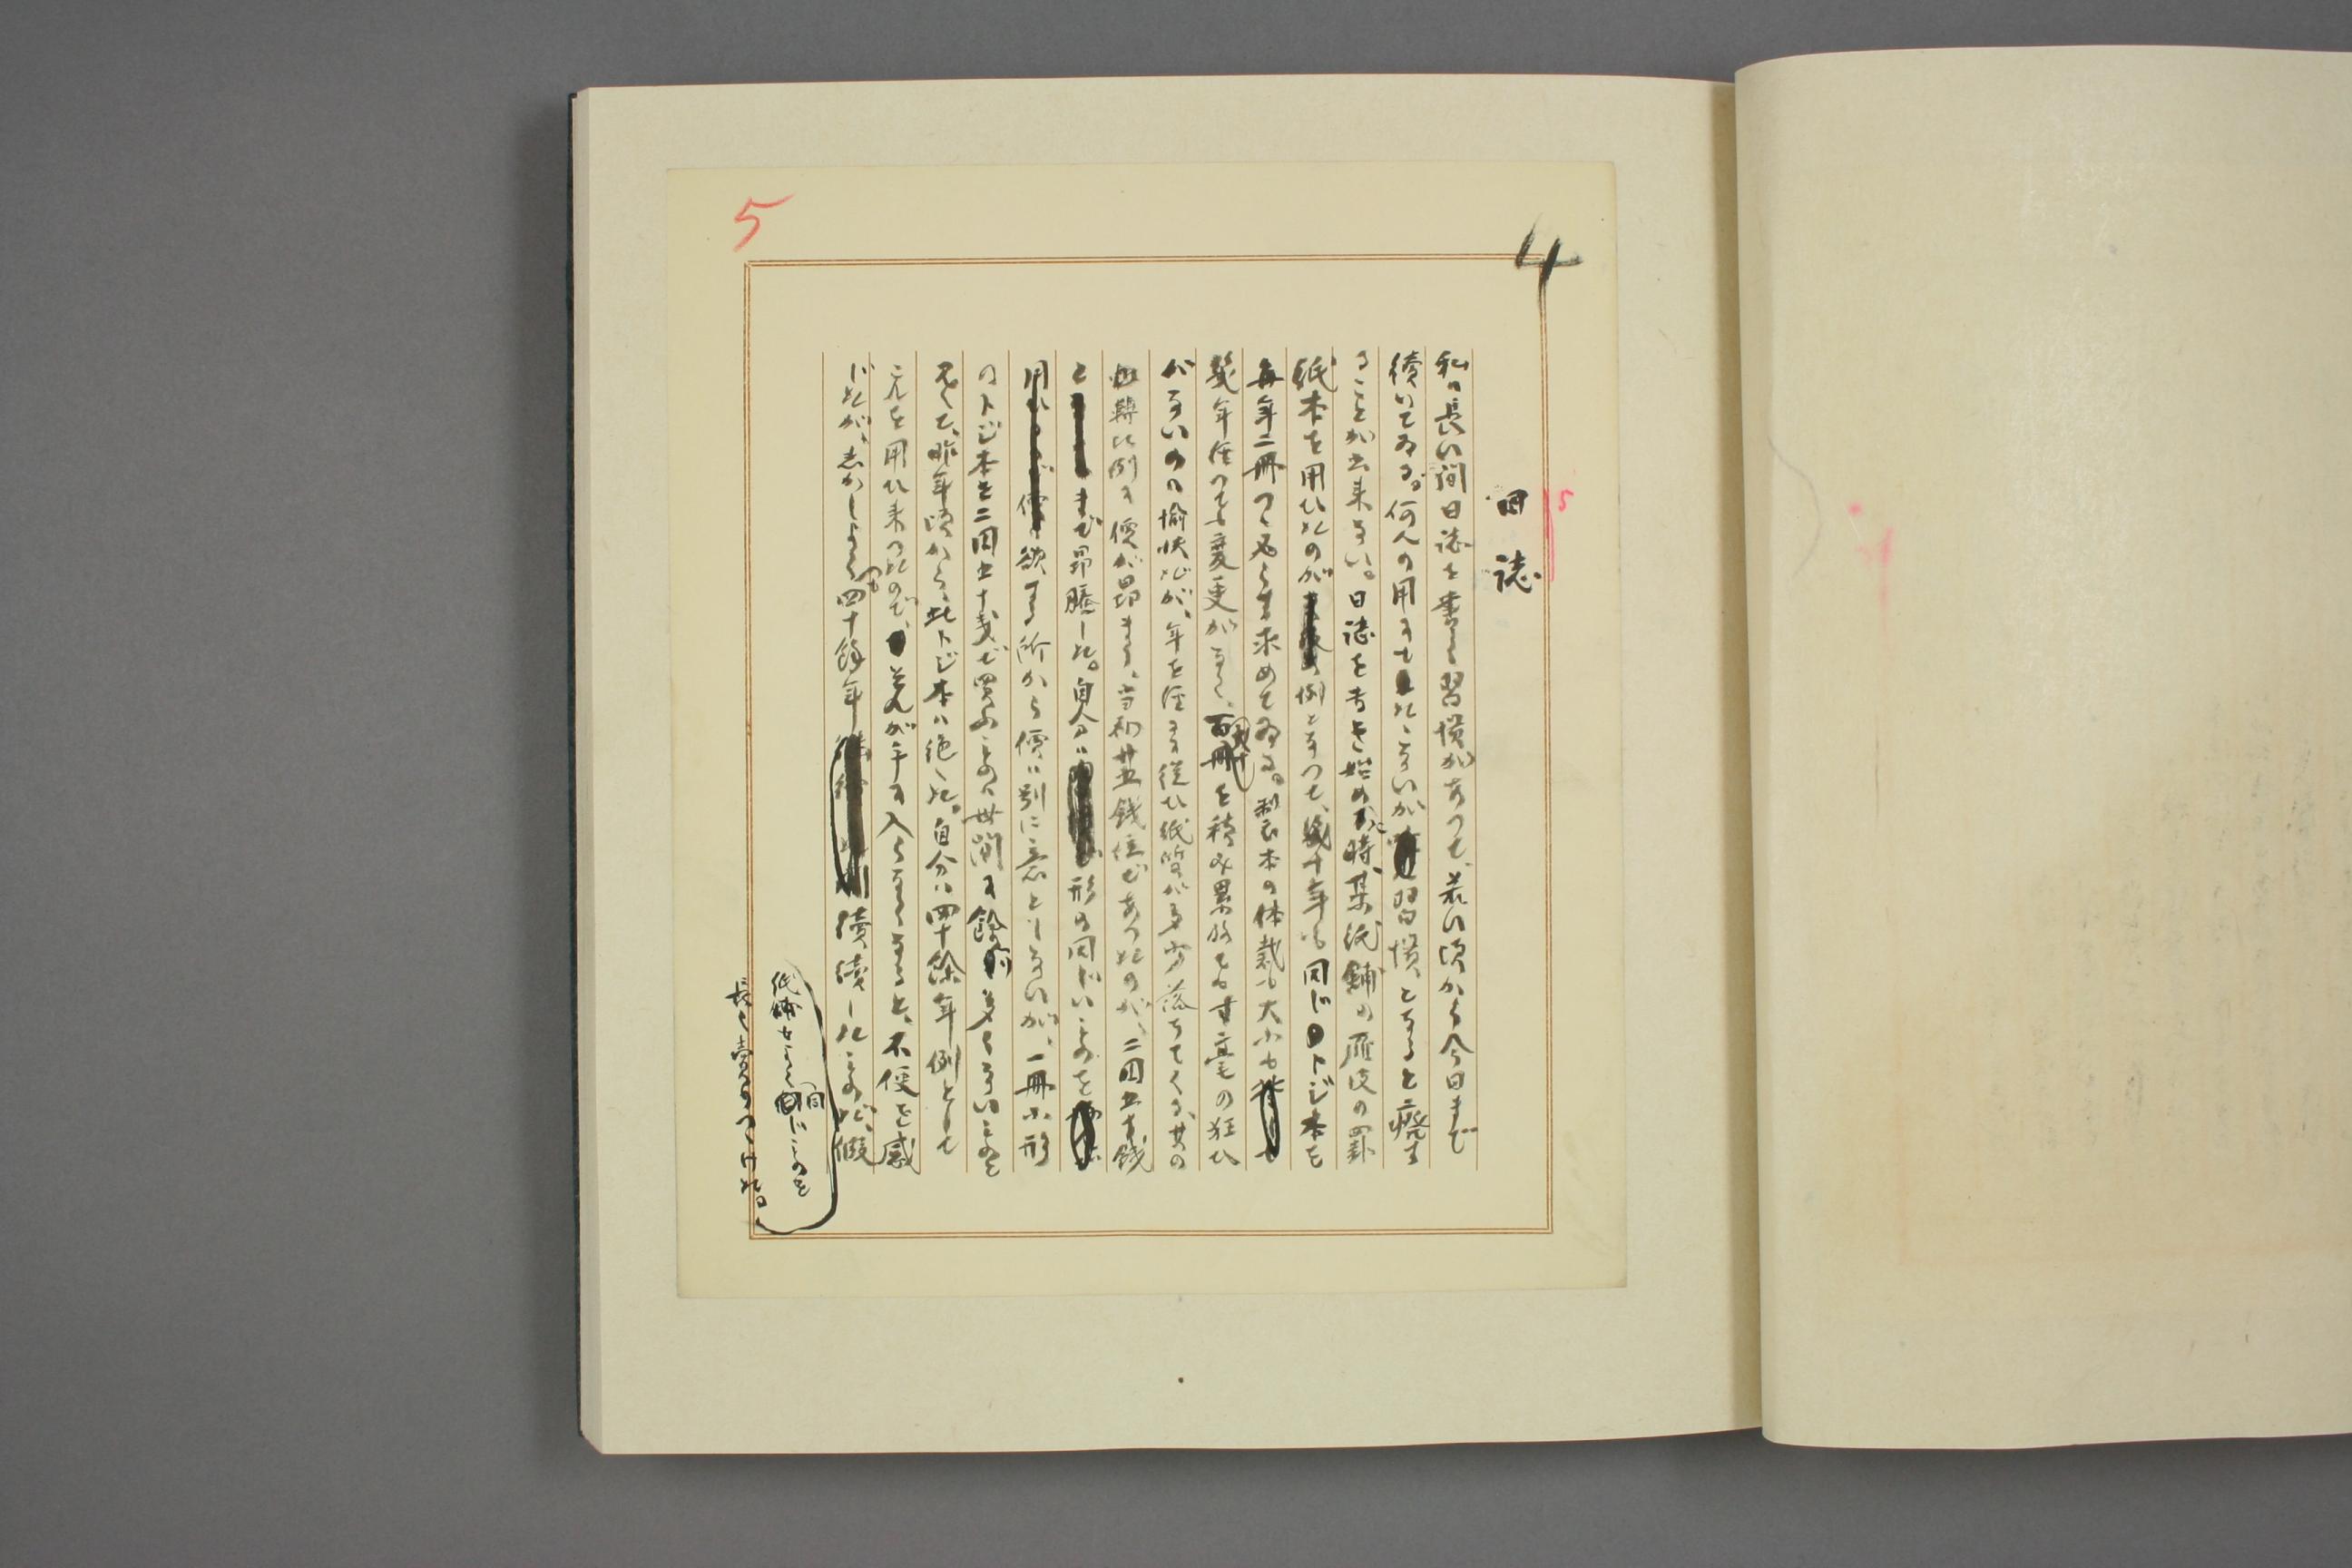 4
5
5
日誌
私の長い間日誌を書く習慣があつて、若い頃から今日まで
続いてゐる。何人の用にもたゝないが習慣となると廃す
ることが出来ない。日誌を書き始めた時、某紙舗の雁皮の罫
紙本を用ひたのが例となつて、幾十年も同じトジ本を
毎年二冊つゝ必らず求めてゐる。製本の体裁も大小も
幾年経つても変更がなく、百冊を積み累ねても寸毫の狂ひ
がないのの愉快だが、年を経るに従ひ紙質が多少落ちてくる、其の
比例に価が昂まる、当初廿五銭位であつたのが、二円五十銭
と まで昂騰した。自分は 形の同じいものを
欲する所から価は別に意としないが、一冊小形
のトジ本を二円五十銭で買ふものは世間に余り多くないものと
見えて、昨年頃から此トジ本は絶えた。自分は四十余年例として
これを用ひ来つたので、それが手に入らなくなると、不便を感
じたが、しかしよくも四十余年 続続したものだ、仮
紙舗もよく同じものを
長く売りつゞけた。